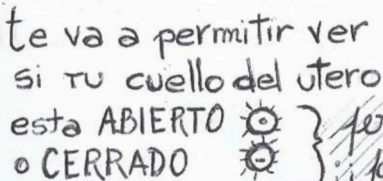 te va a permitir ver
si TU cuello del utero
esta ABIERTO
o CERRADO